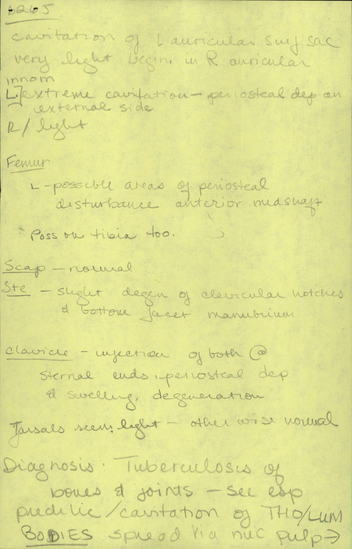 6265
cavitation of L auricular surf sac
very light begin. in R auricular
innom
L} extreme cavitation - periosteal dep on
external side
R / light
Femur
L - possible areas of periosteal
disturbance anterior midshaft
Poss on tibia too.
Scap - normal
Ste - slight degen of clavicular notches
& bottom facet manubrium
Clavicle - infection of both @
sternal ends, periosteal dep
& swelling, degeneration
Tarsals seem light - otherwise normal
Diagnosis: Tuberculosis of
bones & joints - see esp
/cavitation of THO/LUM
BODIES spread via nuc pulp →